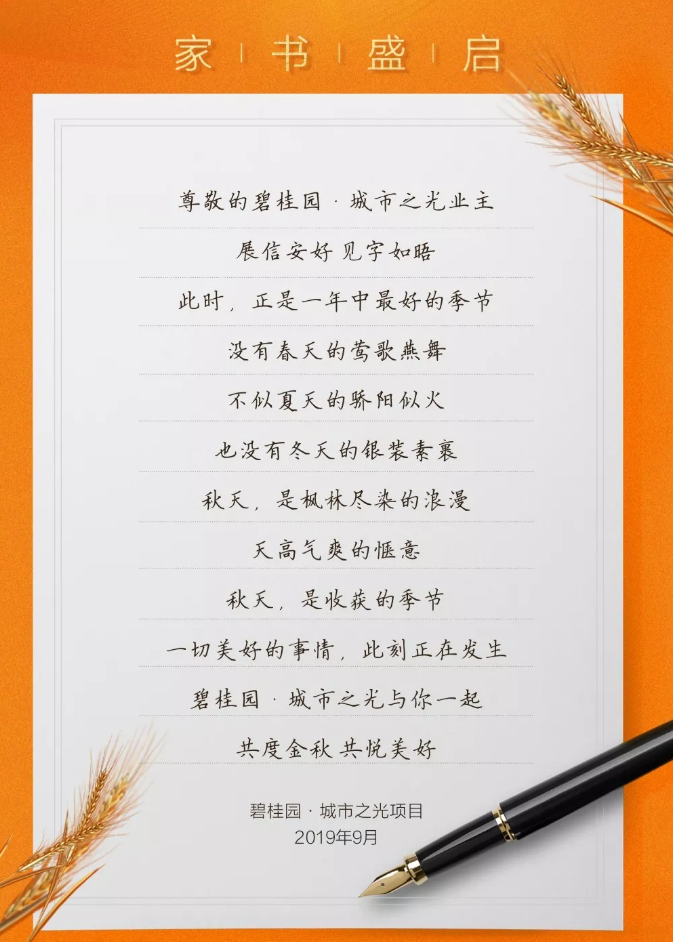 家|书|盛|启
尊敬的碧桂园·城市之光业主
展信安好 见字如晤
此时，正是一年中最好的季节
没有春天的莺歌燕舞
不似夏天的骄阳似火
也没有冬天的银装素裹
秋天，是枫林尽染的浪漫
天高气爽的惬意
秋天，是收获的季节
一切美好的事情，此刻正在发生
碧桂园·城市之光与你一起
共度金秋 共悦美好
碧桂园·城市之光项目
2019年9月